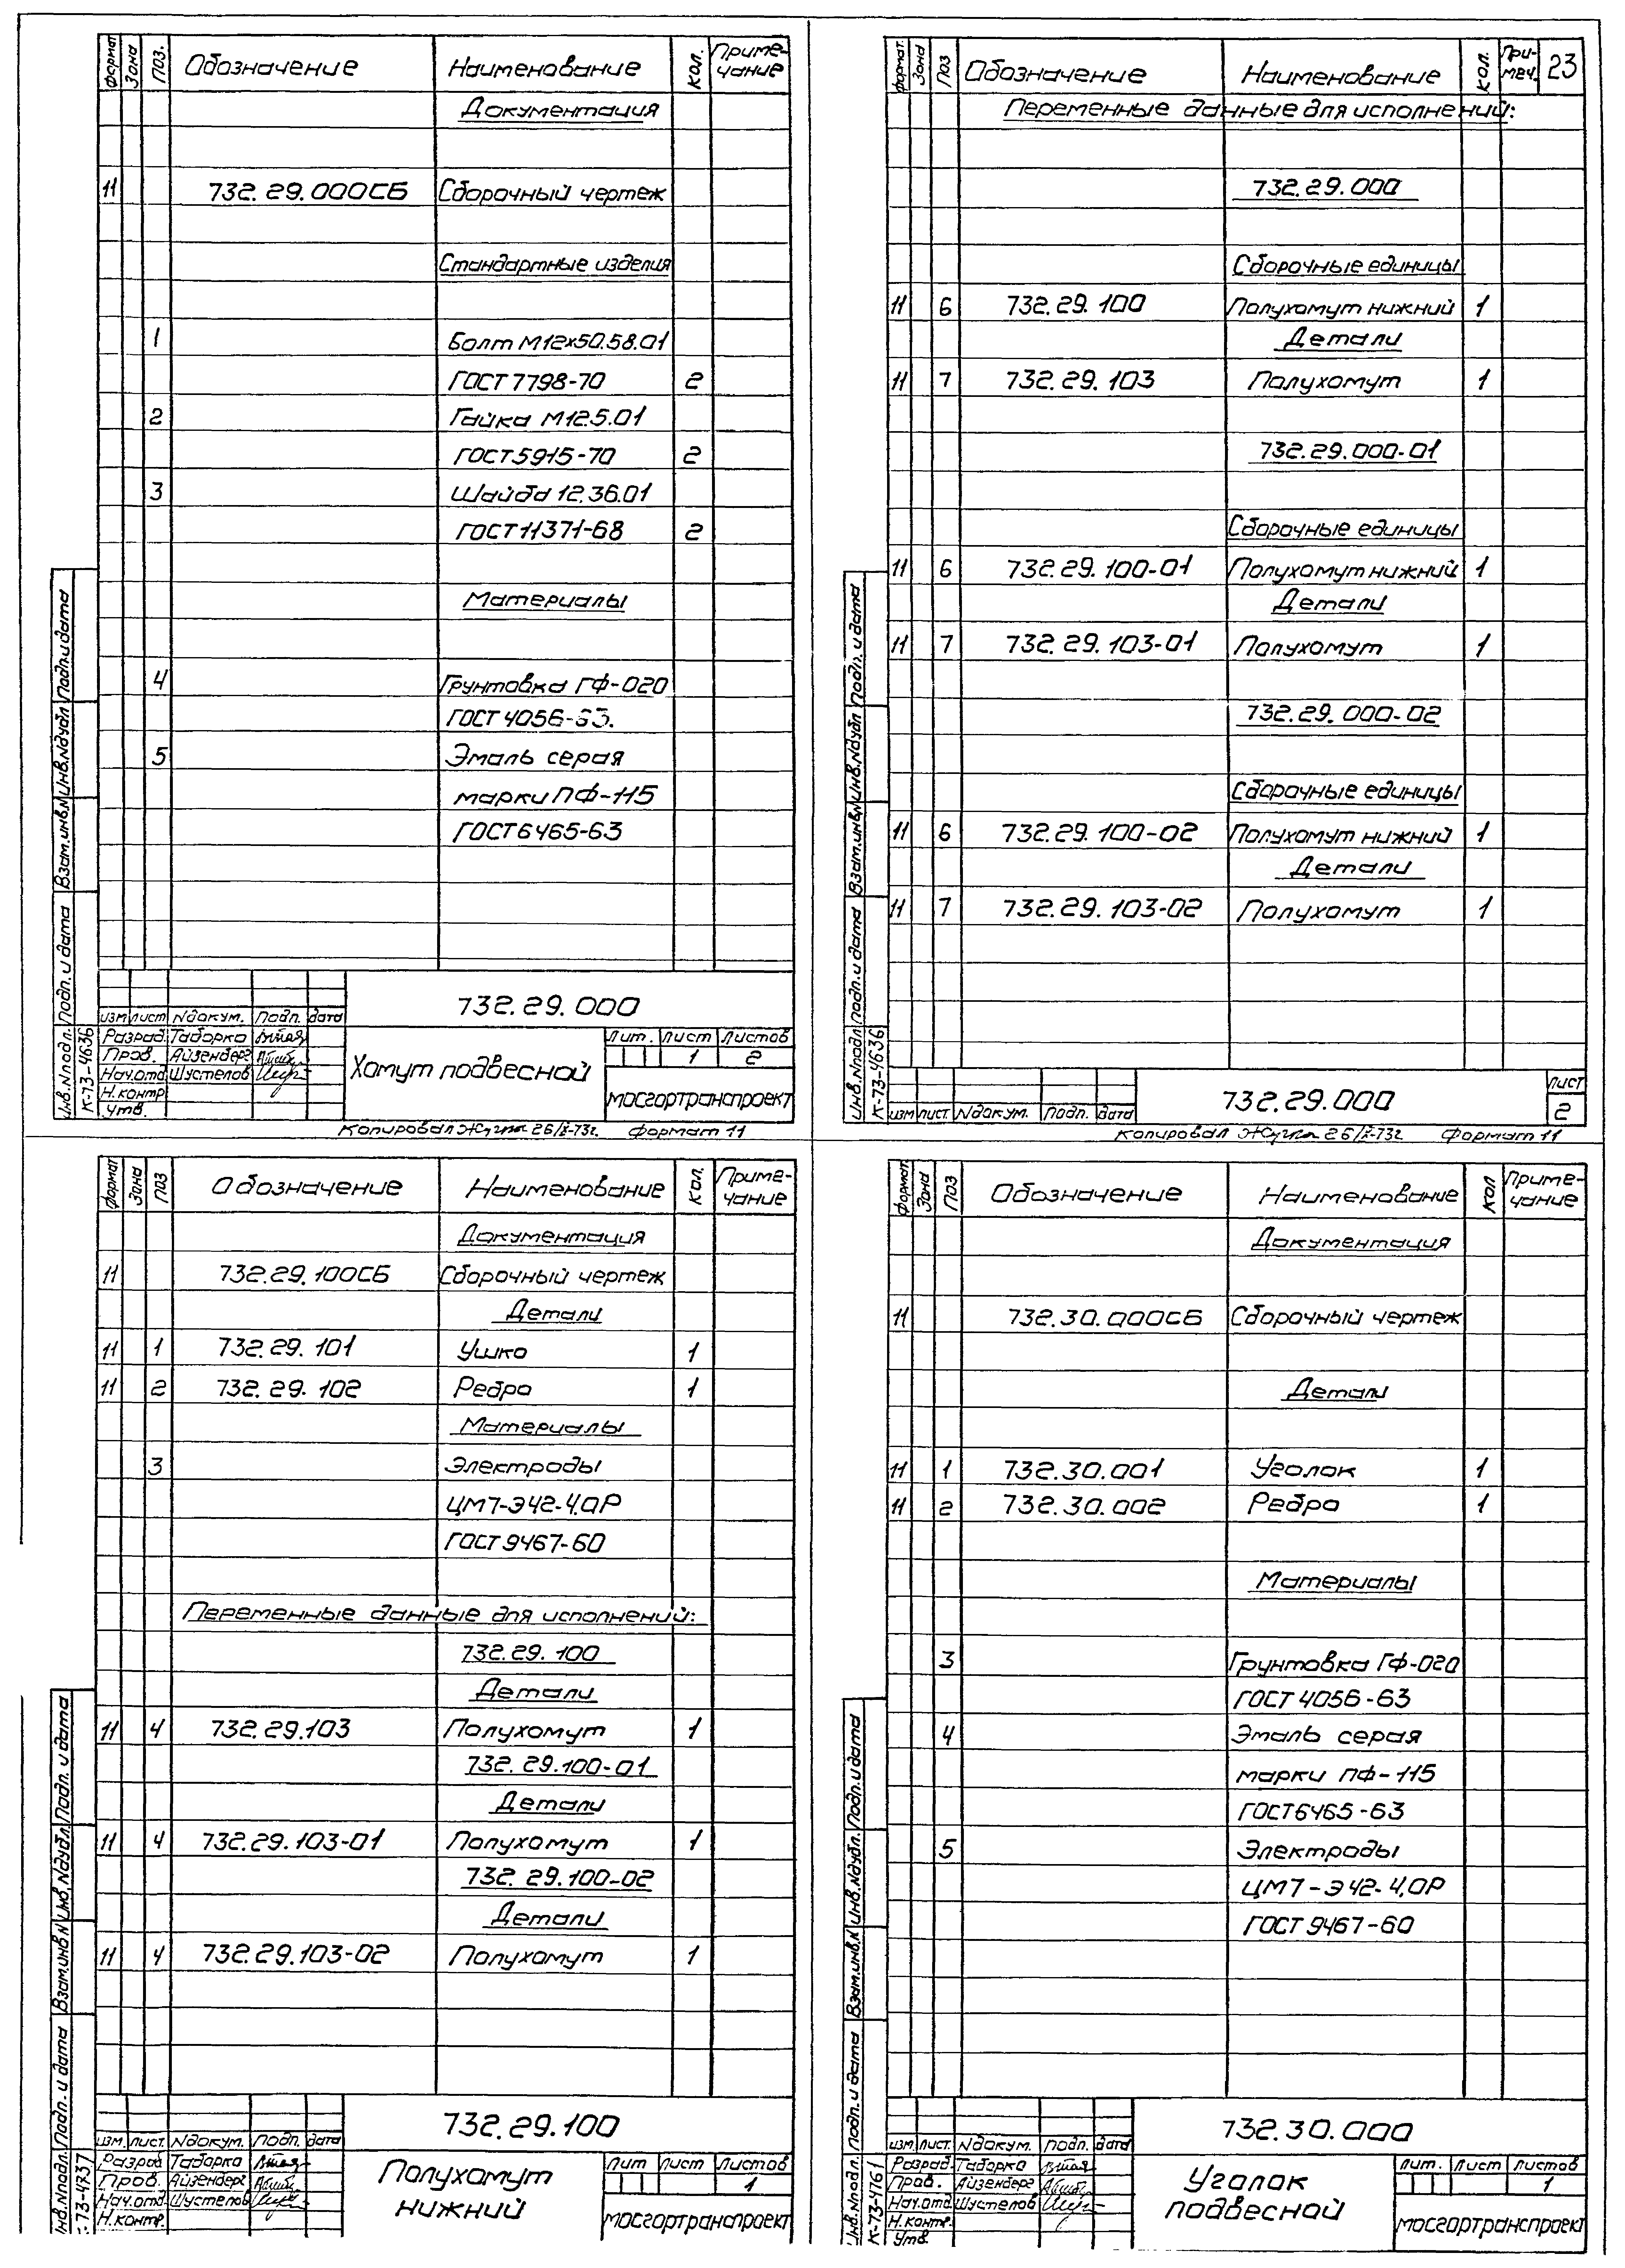 формат Зона Поз. Обозначение Наименование Кол. Приме-чание
Документация
11 732.29.000СБ Сборочный чертеж
Стандартные изделия
1 Болт М12х50.58.01
ГОСТ 7798-70 2
2 Гайка М12.5.01
ГОСТ 5915-70 2
3 Шайба 12.36.01
ГОСТ 11371-68 2
Материалы
4 Грунтовка ГФ-020
ГОСТ 4056-63.
5 Эмаль серая
марки ПФ-115
ГОСТ 6465-63
Инв.Nподл. Подп. и дата Взам.инв.N Инв.Nдубл Подп.и дата
К-73-4636
732.29.000
изм лист Nдокум. Подп. дата
Разраб. Таборко
Пров. Айзенберг
Нач.отд Шустелов
Н.контр
Утв.
Хомут подвесной
Лит. Лист Листов
1 2
Мосгортранспроект
Копировал 26/X-73г. Формат 11
формат. Зона Поз Обозначение Наименование Кол. При-меч. 23
Переменные данные для исполнений:
732.29.000
Сборочные единицы
11 6 732.29.100 Полухомут нижний 1
Детали
11 7 732.29.103 Полухомут 1
732.29.000-01
Сборочные единицы
11 6 732.29.100-01 Полухомут нижний 1
Детали
11 7 732.29.103-01 Полухомут 1
732.29.000-02
Сборочные единицы
11 6 732.29.100-02 Полухомут нижний 1
Детали
11 7 732.29.103-02 Полухомут 1
Инв.Nподл Подп. и дата Взам.инв.N Инв.Nдубл Подп. и дата
К-73-4636
изм лист. Nдокум. Подп. дата
732.29.000
Лист
2
Копировал 26/X-73г. Формат 11
формат Зона Поз Обозначение Наименование Кол. Приме-чание
Документация
11 732.29.100СБ Сборочный чертеж
Детали
11 1 732.29.101 Ушко 1
11 2 732.29.102 Ребро 1
Материалы
3 Электроды
ЦМ7-Э42-4,0Р
ГОСТ 9467-60
Переменные данные для исполнений:
732.29.100
Детали
11 4 732.29.103 Полухомут 1
732.29.100-01
Детали
11 4 732.29.103-01 Полухомут 1
732.29.100-02
Детали
11 4 732.29.103-02 Полухомут 1
Инв.Nподл. Подп. и дата Взам.инв.N Инв.Nдубл. Подп. и дата
К-73-4737
732.29.100
изм. лист. Nдокум. Подп. дата
Разраб Таборко
Пров. Айзенберг
Нач.отд. Шустелов
Н.контр.
Полухомут
нижний
Лит Лист Листов
1
Мосгортранспроект
формат. Зона Поз Обозначение Наименование Кол Приме-чание
Документация
11 732.30.000СБ Сборочный чертеж
Детали
11 1 732.30.001 Уголок 1
11 2 732.30.002 Ребро 1
Материалы
3 Грунтовка ГФ-020
ГОСТ 4056-63
4 Эмаль серая
марки ПФ-115
ГОСТ 6465-63
5 Электроды
ЦМ7-Э42-4,0Р
ГОСТ 9467-60
Инв.Nподл. Подп. и дата Взам.инв.N Инв.Nдубл. Подп.и дата
К-73-4761
732.30.000
изм. лист. Nдокум. Подп. дата
Разраб. Таборко
Пров. Айзенберг
Нач.отд. Шустелов
Н.контр.
Утв.
Уголок
подвесной
Лит. Лист Листов
1
Мосгортранспроект